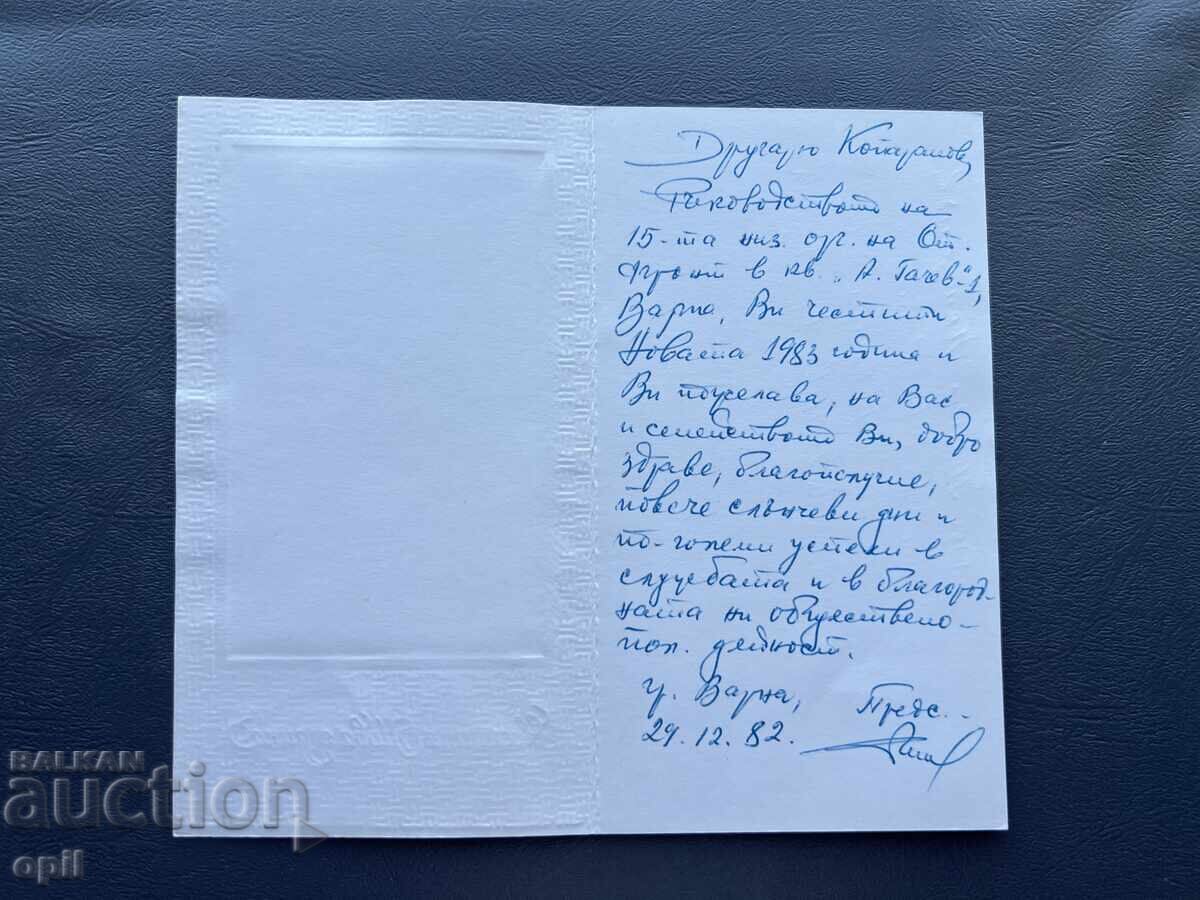 Другарю
Ръководството на
15-та низ. орг. на От.
фронт в кв. „А. Гачев"-1,
Варна, Ви честити
Новата 1983 година и
Ви пожелава, на Вас
и семейството Ви, добро
здраве, благополучие,
повече слънчеви дни и
по-големи успехи в
службата и в благород-
ната ни обществено-
пол. дейност.
гр. Варна, Предс.
29.12.82.
BALKAN
auction
opil